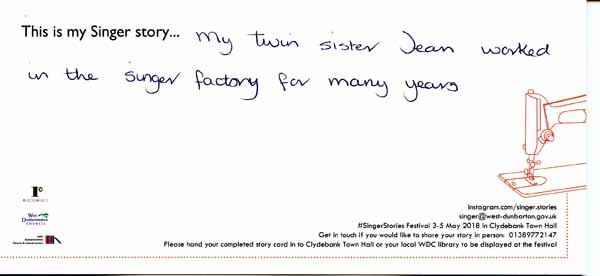 This is my Singer story... My twin sister Jean worked
in the singer factory for many years
instagram.com/singer.stories
singer@west-dunbarton.gov.uk
#SingerStories Festival 3-5 May 2018 in Clydebank Town Hall
Get in touch if you would like to share your story in person: 01389772147
Please hand your completed story card in to Clydebank Town Hall or your local WDC library to be displayed at the festival
West
Dunbartonshire
COUNCIL